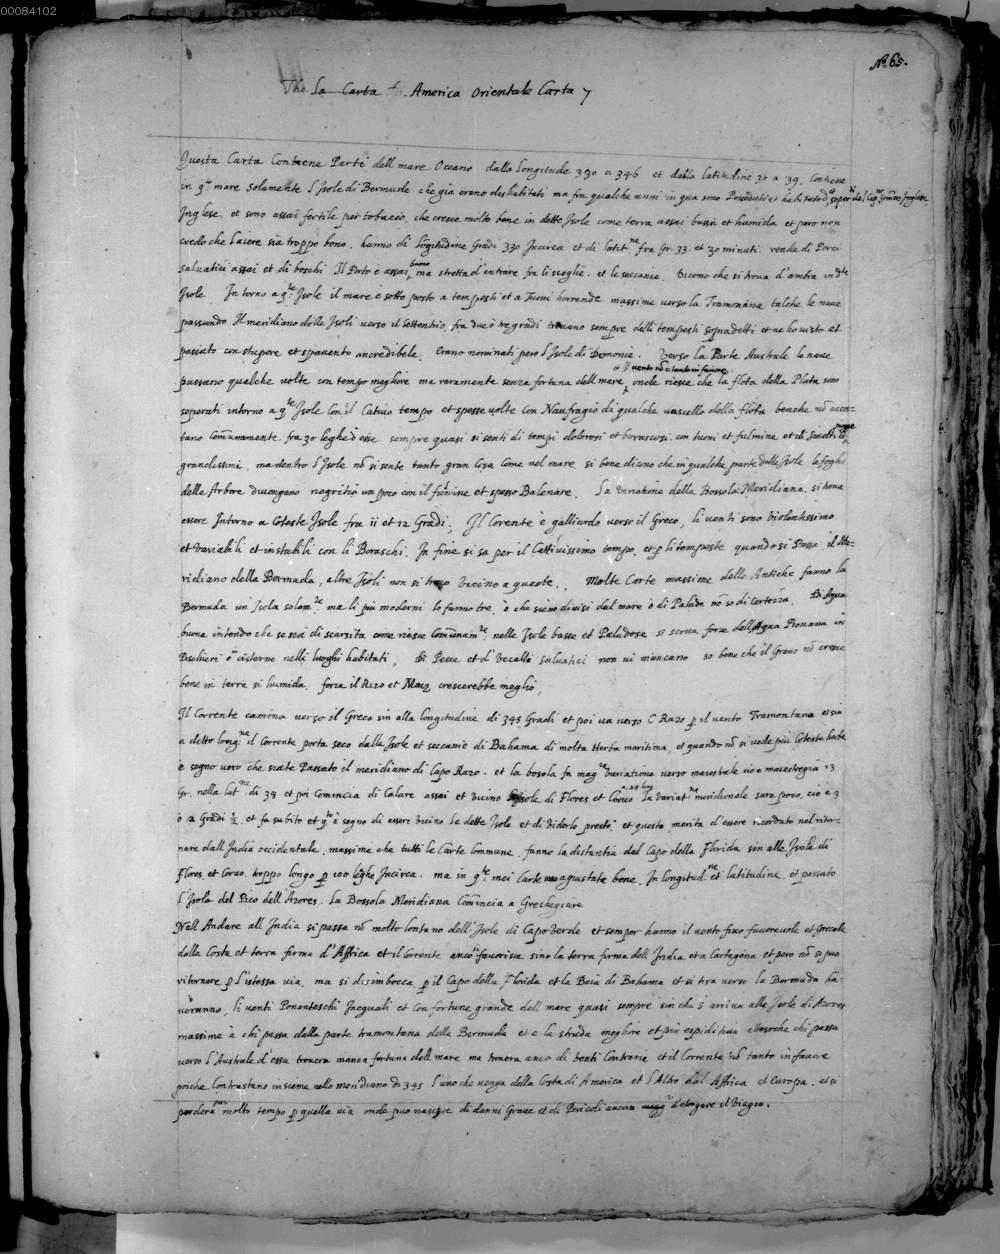 00084102
No. 65.
The La Carta America Orientale Carta 7
Questa Carta Contiene Parte dell mare Oceano dalla Longitude 330 a 346 et dalla Latitudine 30 a 39. Contiene
in q.to mare Solamente l'Isole di Bermude che gia erano deshabitati ma fra qualche anni in qua sono Posseduti et habitate
Inglese, et sono assai fertile per tobacio, che cresce molto bene in dette Isole come terra assai bassi et humida et pero non
credo che l'aiere sia troppo bono. hanno di Longitudine Gradi 330 Incirca et di latit.ne fra Gr. 33. et 30 minuti. rende di Porci
salvatici assai et di boschi Il Porto è assai buono ma stretta d'entrare fra li scoglie. et le seccanie. Dicono che si trova d'ambra in d.te
Isole. In torno a q.te Isole il mare è sotto posto a tempesti et a Tuoni horrende massime verso la Tramonana talche le nave
passando Il meridiano delle Isoli verso il Settentrio, fra due ò tre gradi trovano sempre delli tempesti sopradetti et ne ho visto et
passato con stupore et spavento incredibile. Erano nominati pero l'Isole di Demonie. Verso la Parte Australe le nave
o il vento nõ è tanto in favore
passano qualche volte con tempo megliore ma raramente senza fortuna dell mare, onde riesce che la flota della Plata sono
seperati intorno a q.te Isole con il Cativo tempo et spesse volte con Naufragio di qualche vascello della flota benche nõ accos-
tano Comunamente fra 30 leghe d'esse sempre quasi si senti di tempi dolorosi et borascosi. con tuoni et fulmine et di
grandissimi. ma dentro l'Isole nõ si sente tanto gran cosa come nel mare si bene dicono che in qualche parte delle Isole la foglie
delle Arbore divengano negritio un poco con il fulmine et spesso Balenare. La variatione della Bossola Meridiana. si trova
essere Intorno a Coteste Isole fra 11 et 12 Gradi; Il Corente è galliardo verso il Greco, li venti sono violentissimo
et variabili et instabili con li Boraschi. In fine si sa per il Cattivissimo tempo, et p li tempeste quando si Passa il Me-
ridiano della Bermuda, altre Isoli non si trova vicino a queste., Molte Carte massime delle Antiche fanno la
Bermuda un'Isola solam.te ma li più moderni lo fanno tre, o che sieno divisi dal mare ò di Palude nõ so di Certezza. Di Aqua
buona intendo che se sia di scarsita come riesce Comunam.te nelle Isole basse et Paludose si serva forze dell'Aqua Piovana in
Peschieri ò cisterne nelli luoghi habitati, Di Pesce et d'Vecelli salvatici non vi mancano so bene che il Grano nõ cresce
bene in terra si humida. forze il Rizo et Maiz crescerebbe meglio,
Il Corrente camina verso il Greco sin alla longitudine di 345 Gradi et poi va verso C. Razo p il vento Tramontana et sin
a detto long.ne il Corrente porta seco dalle Isole et seccanie di Bahama di molta Herba maritima, et quando nõ si vede più Coteste herbe
è segno vero che siate Passato il meridiano di Capo Razo. et la bosola fa mag.re variatione verso maestrale cio è maestregia 13
Gr. nella lat.ne di 38 et poi Comincia di Calare assai et vicino Isole di Flores et Corvo la variat.ne meridionale sara poco, cio è 3
ò 2 Gradi ½. et fa subito et q.to è segno di essere vicino le dette Isole et di viderlo presto; et questo merita d'essere ricordato nel ritor-
nare dall India occidentale. massime che tutti le Carte Commune. fanno la distantia dal Capo della Florida sin alle Isole di
Flores, et Corvo. troppo longo p 100 leghe Incirca. ma in q.te mei Carte sono agiustate bene. In longitud.ne et latitudine. et passato
l'Isola del Pico dell'Azores. La Bossola Meridiana Comincia a Grechegiare
Nell'Andare all India si passa nõ molto lontano dell'Isole di Capo Verde et semper hanno il vento fixo favorevole et Grecale
dalla Costa et terra firma d'Affrica et il Corrente anco favorisce sino la terra firma dell India et a Cartagena et pero nõ si puo
ritornare p l'istessa via. ma si disimbocca p il Capo della Florida et la Baia di Bahama et si tira verso la Bermuda ha-
veranno, li venti Ponanteschi Inequali et con fortune grande dell mare quasi sempre sin che s'arriva alle Isole di Azores
massime à chi passa dalla parte tramontana della Bermuda et e la strada megliore et più espiditiva attesoche chi passa
verso l'Australe d'essa trovera manca fortuna dell mare ma trovera anco di venti Contrarie et il Corrente nõ tanto in favore
poiche Contrastano insieme nello meridiano di 345 l'uno che venga della Costa di America et l'Altro dal Affrica et Europa. et si
perdera pur molto tempo p quella via onde puo nascere di danni Grave et di Pericoli ancora d'alongare il Viagio.